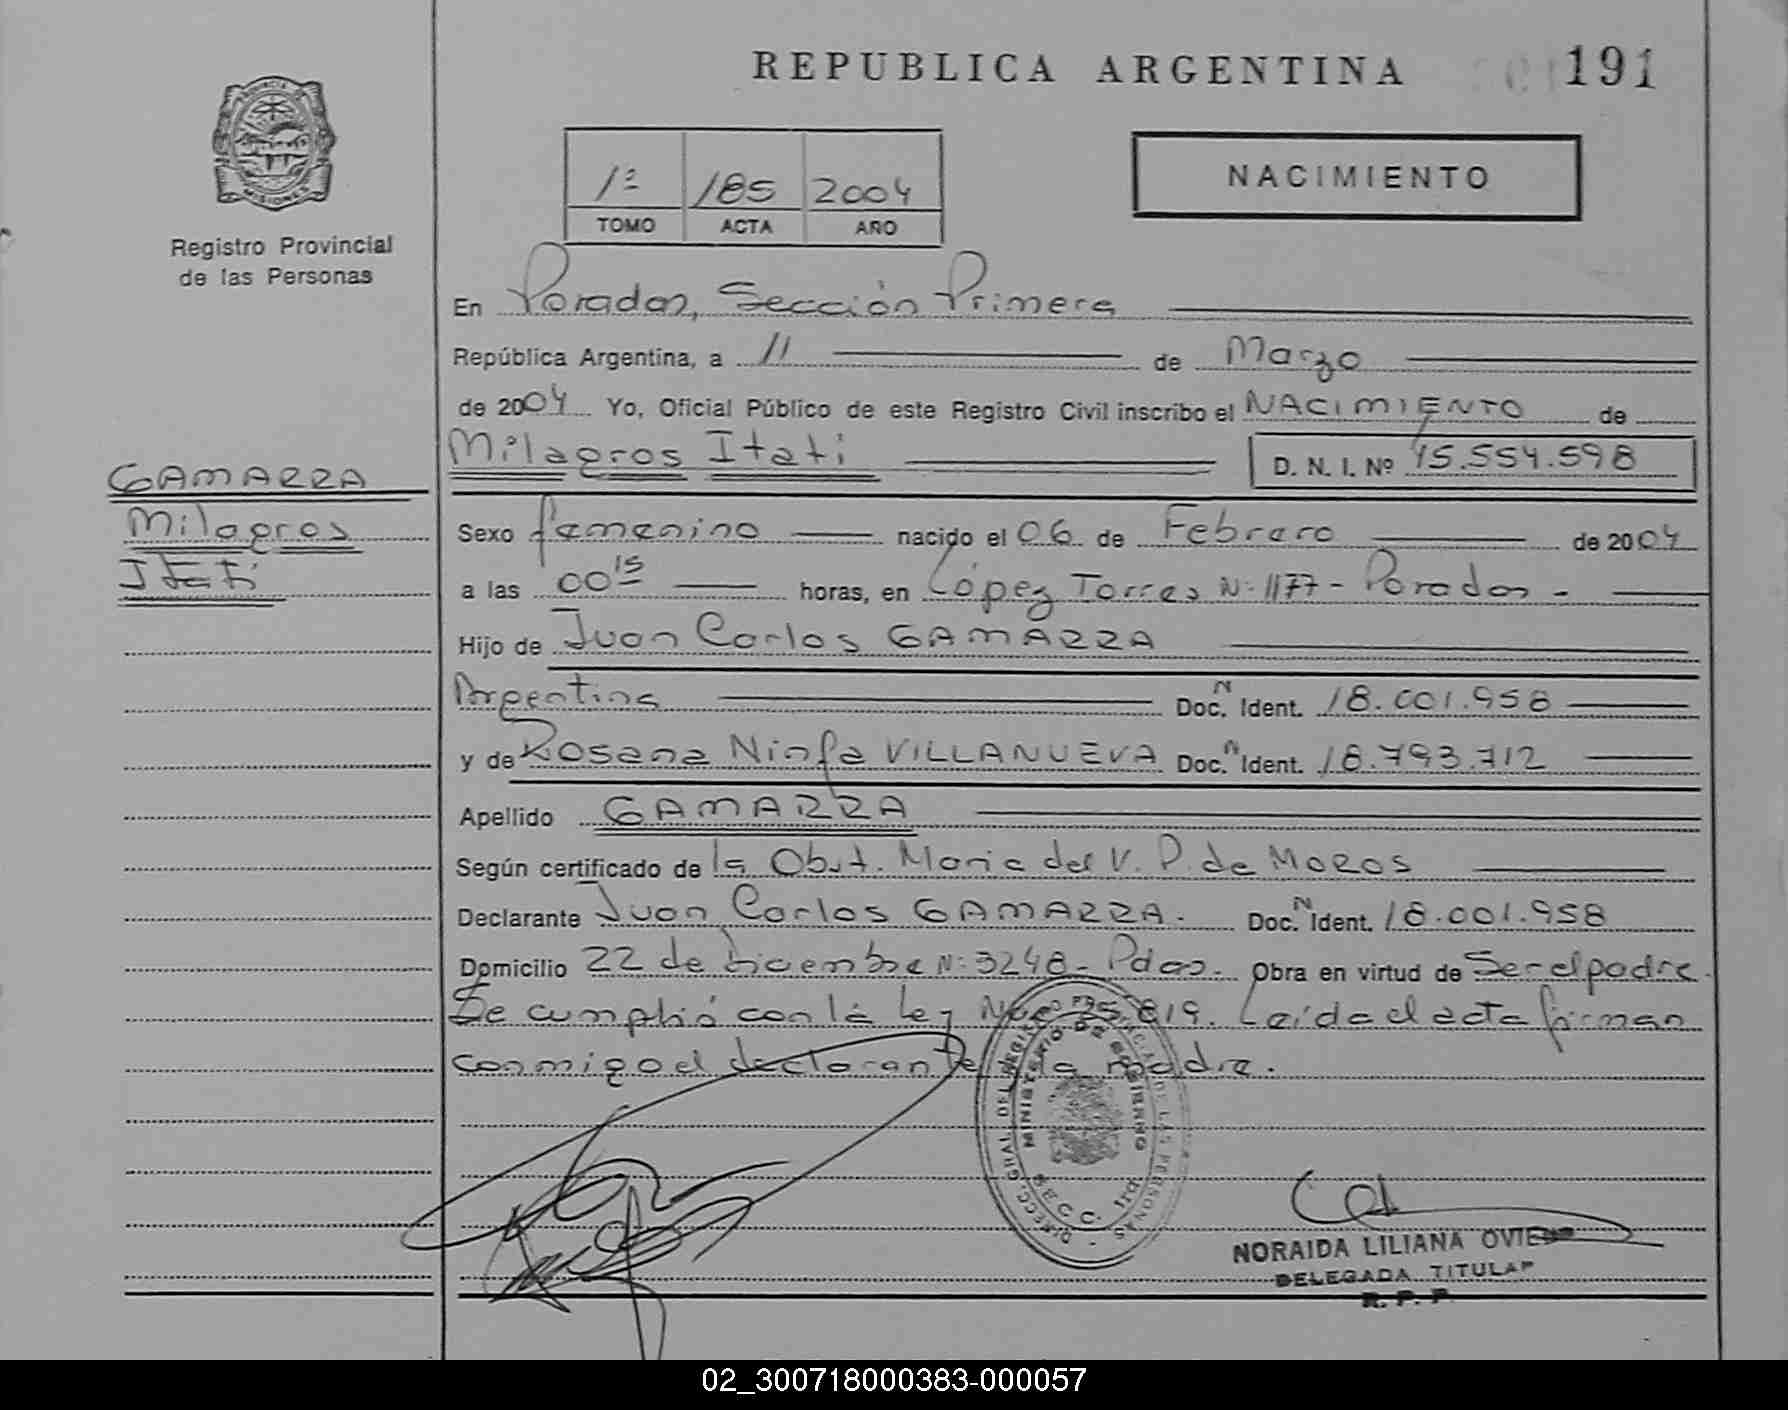 REPUBLICA ARGENTINA 191
1º 185 2004
TOMO ACTA AÑO
NACIMIENTO
PROVINCIA DE
MISIONES
Registro Provincial
de las Personas
GAMARRA
Milagros
Itatí
En Posadas, Sección Primera
República Argentina, a 11 de Marzo
de 2004 Yo, Oficial Público de este Registro Civil inscribo el NACIMIENTO de
Milagros Itatí D. N. I. Nº 45.554.598
Sexo femenino nacido el 06 de Febrero de 2004
a las 00 15 horas, en López Torres Nº 1177 - Posadas -
Hijo de Juan Carlos GAMARRA
Argentina Doc. N Ident. 18.001.958
y de Rosana Ninfa VILLANUEVA Doc. N Ident. 18.793.712
Apellido GAMARRA
Según certificado de la Obst. Maria del V. P. de MOROS
Declarante Juan Carlos GAMARRA. Doc. N Ident. 18.001.958
Domicilio 22 de diciembre Nº 3248 - Pdas. Obra en virtud de Ser el padre.
Se cumplió con la Ley Nro 25.819. Leída el acta firman
conmigo el declarante y la madre.
DIRECC. GRAL. DEL REGISTRO PROVINCIAL DE LAS PERSONAS
MINISTERIO DE GOBIERNO
NORAIDA LILIANA OVIEDO
DELEGADA TITULAR
R. P. P.
02_300718000383-000057